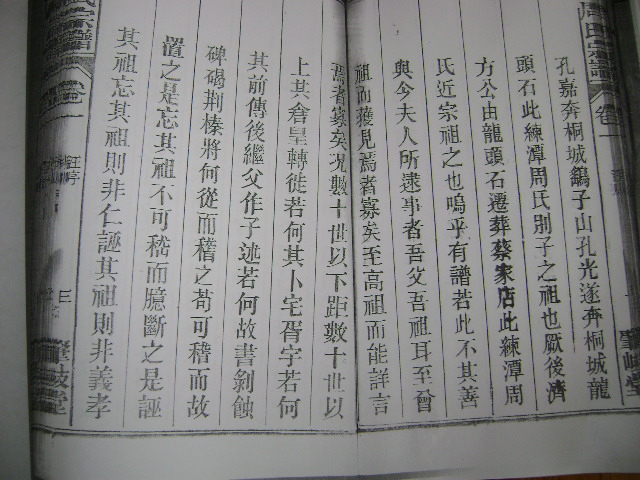 周氏宗譜 卷一
孔嘉奔桐城鷂子山孔光遂奔桐城龍
頭石此練潭周氏別子之祖也厥後濟
方公由龍頭石遷葬蔡家店此練潭周
氏近宗祖之也嗚乎有譜若此不其善
與今夫人所逮事者吾父吾祖耳至曾
祖而獲見焉者寡矣至高祖而能詳言
焉者寡矣况數十世以下距數十世以
上其倉皇轉徙若何其卜宅胥宇若何
其前傳後繼父作子述若何故書剝蝕
碑碣荆榛將何從而稽之苟可稽而故
置之是忘其祖不可嵇而臆斷之是誣
其祖忘其祖則非仁誣其祖則非義孝
氏宗譜
三